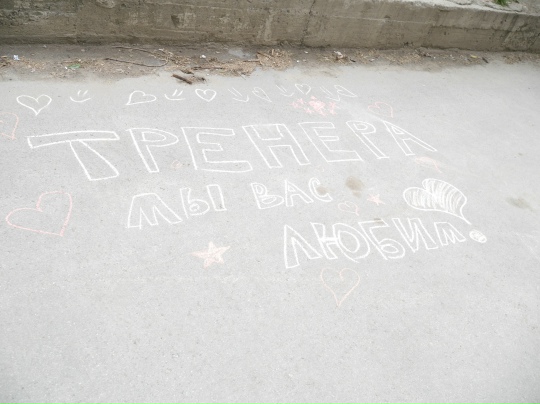 ТРЕНЕРА
МЫ ВАС
ЛЮБИМ!